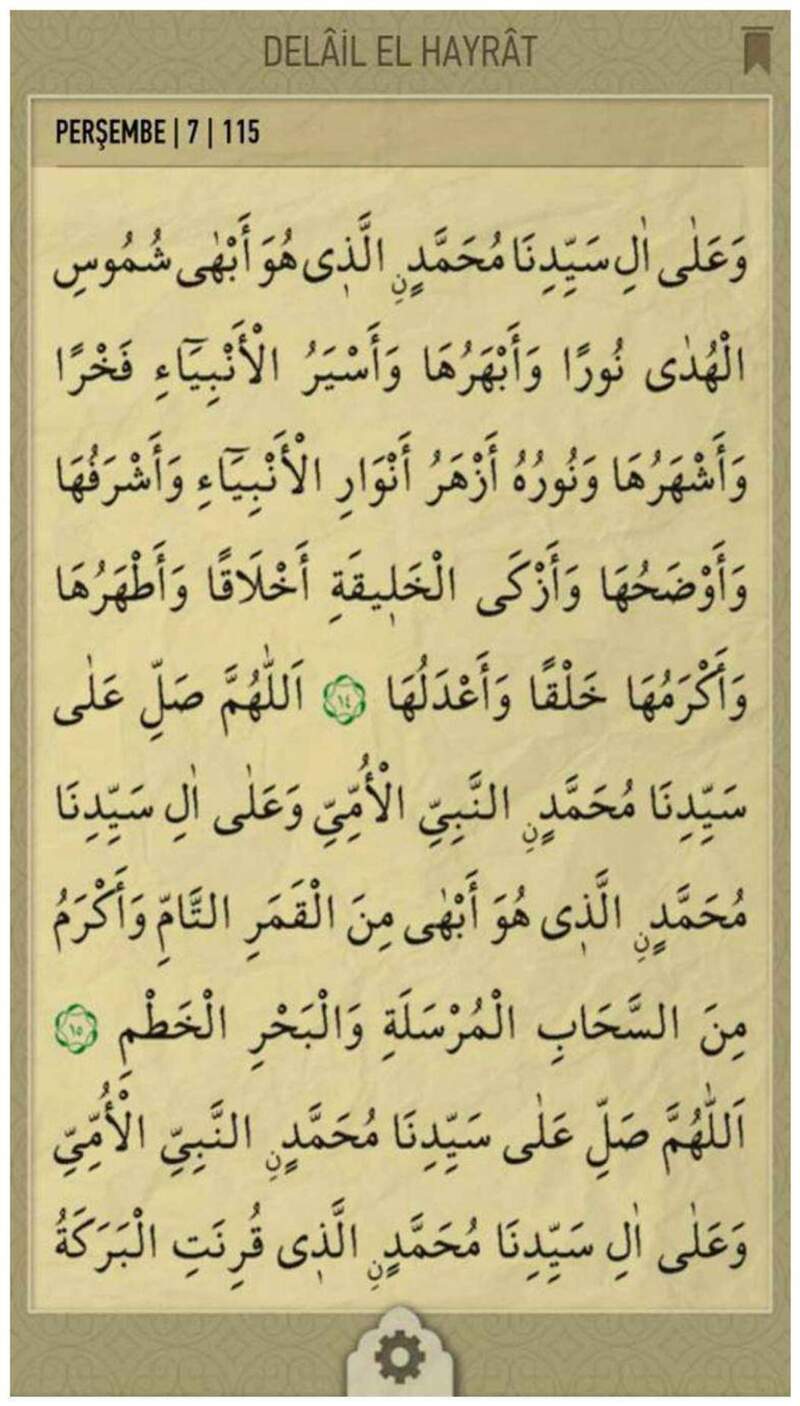 DELÂİL EL HAYRÂT
PERŞEMBE | 7 | 115
وَعَلٰى اٰلِ سَيِّدِنَا مُحَمَّدٍنِ الَّذ۪ى هُوَ أَبْهٰى شُمُوسِ
الْهُدٰى نُورًا وَأَبْهَرُهَا وَأَسْيَرُ الْأَنْبِيَٓاءِ فَخْرًا
وَأَشْهَرُهَا وَنُورُهُ أَزْهَرُ أَنْوَارِ الْأَنْبِيَٓاءِ وَأَشْرَفُهَا
وَأَوْضَحُهَا وَأَزْكَى الْخَل۪يقَةِ أَخْلَاقًا وَأَطْهَرُهَا
وَأَكْرَمُهَا خَلْقًا وَأَعْدَلُهَا ١٤ اَللّٰهُمَّ صَلِّ عَلٰى
سَيِّدِنَا مُحَمَّدٍنِ النَّبِيِّ الْأُمِّيِّ وَعَلٰى اٰلِ سَيِّدِنَا
مُحَمَّدٍنِ الَّذ۪ى هُوَ أَبْهٰى مِنَ الْقَمَرِ التَّامِّ وَأَكْرَمُ
مِنَ السَّحَابِ الْمُرْسَلَةِ وَالْبَحْرِ الْخَطْمِ ١٥
اَللّٰهُمَّ صَلِّ عَلٰى سَيِّدِنَا مُحَمَّدٍنِ النَّبِيِّ الْأُمِّيِّ
وَعَلٰى اٰلِ سَيِّدِنَا مُحَمَّدٍنِ الَّذ۪ى قُرِنَتِ الْبَرَكَةُ